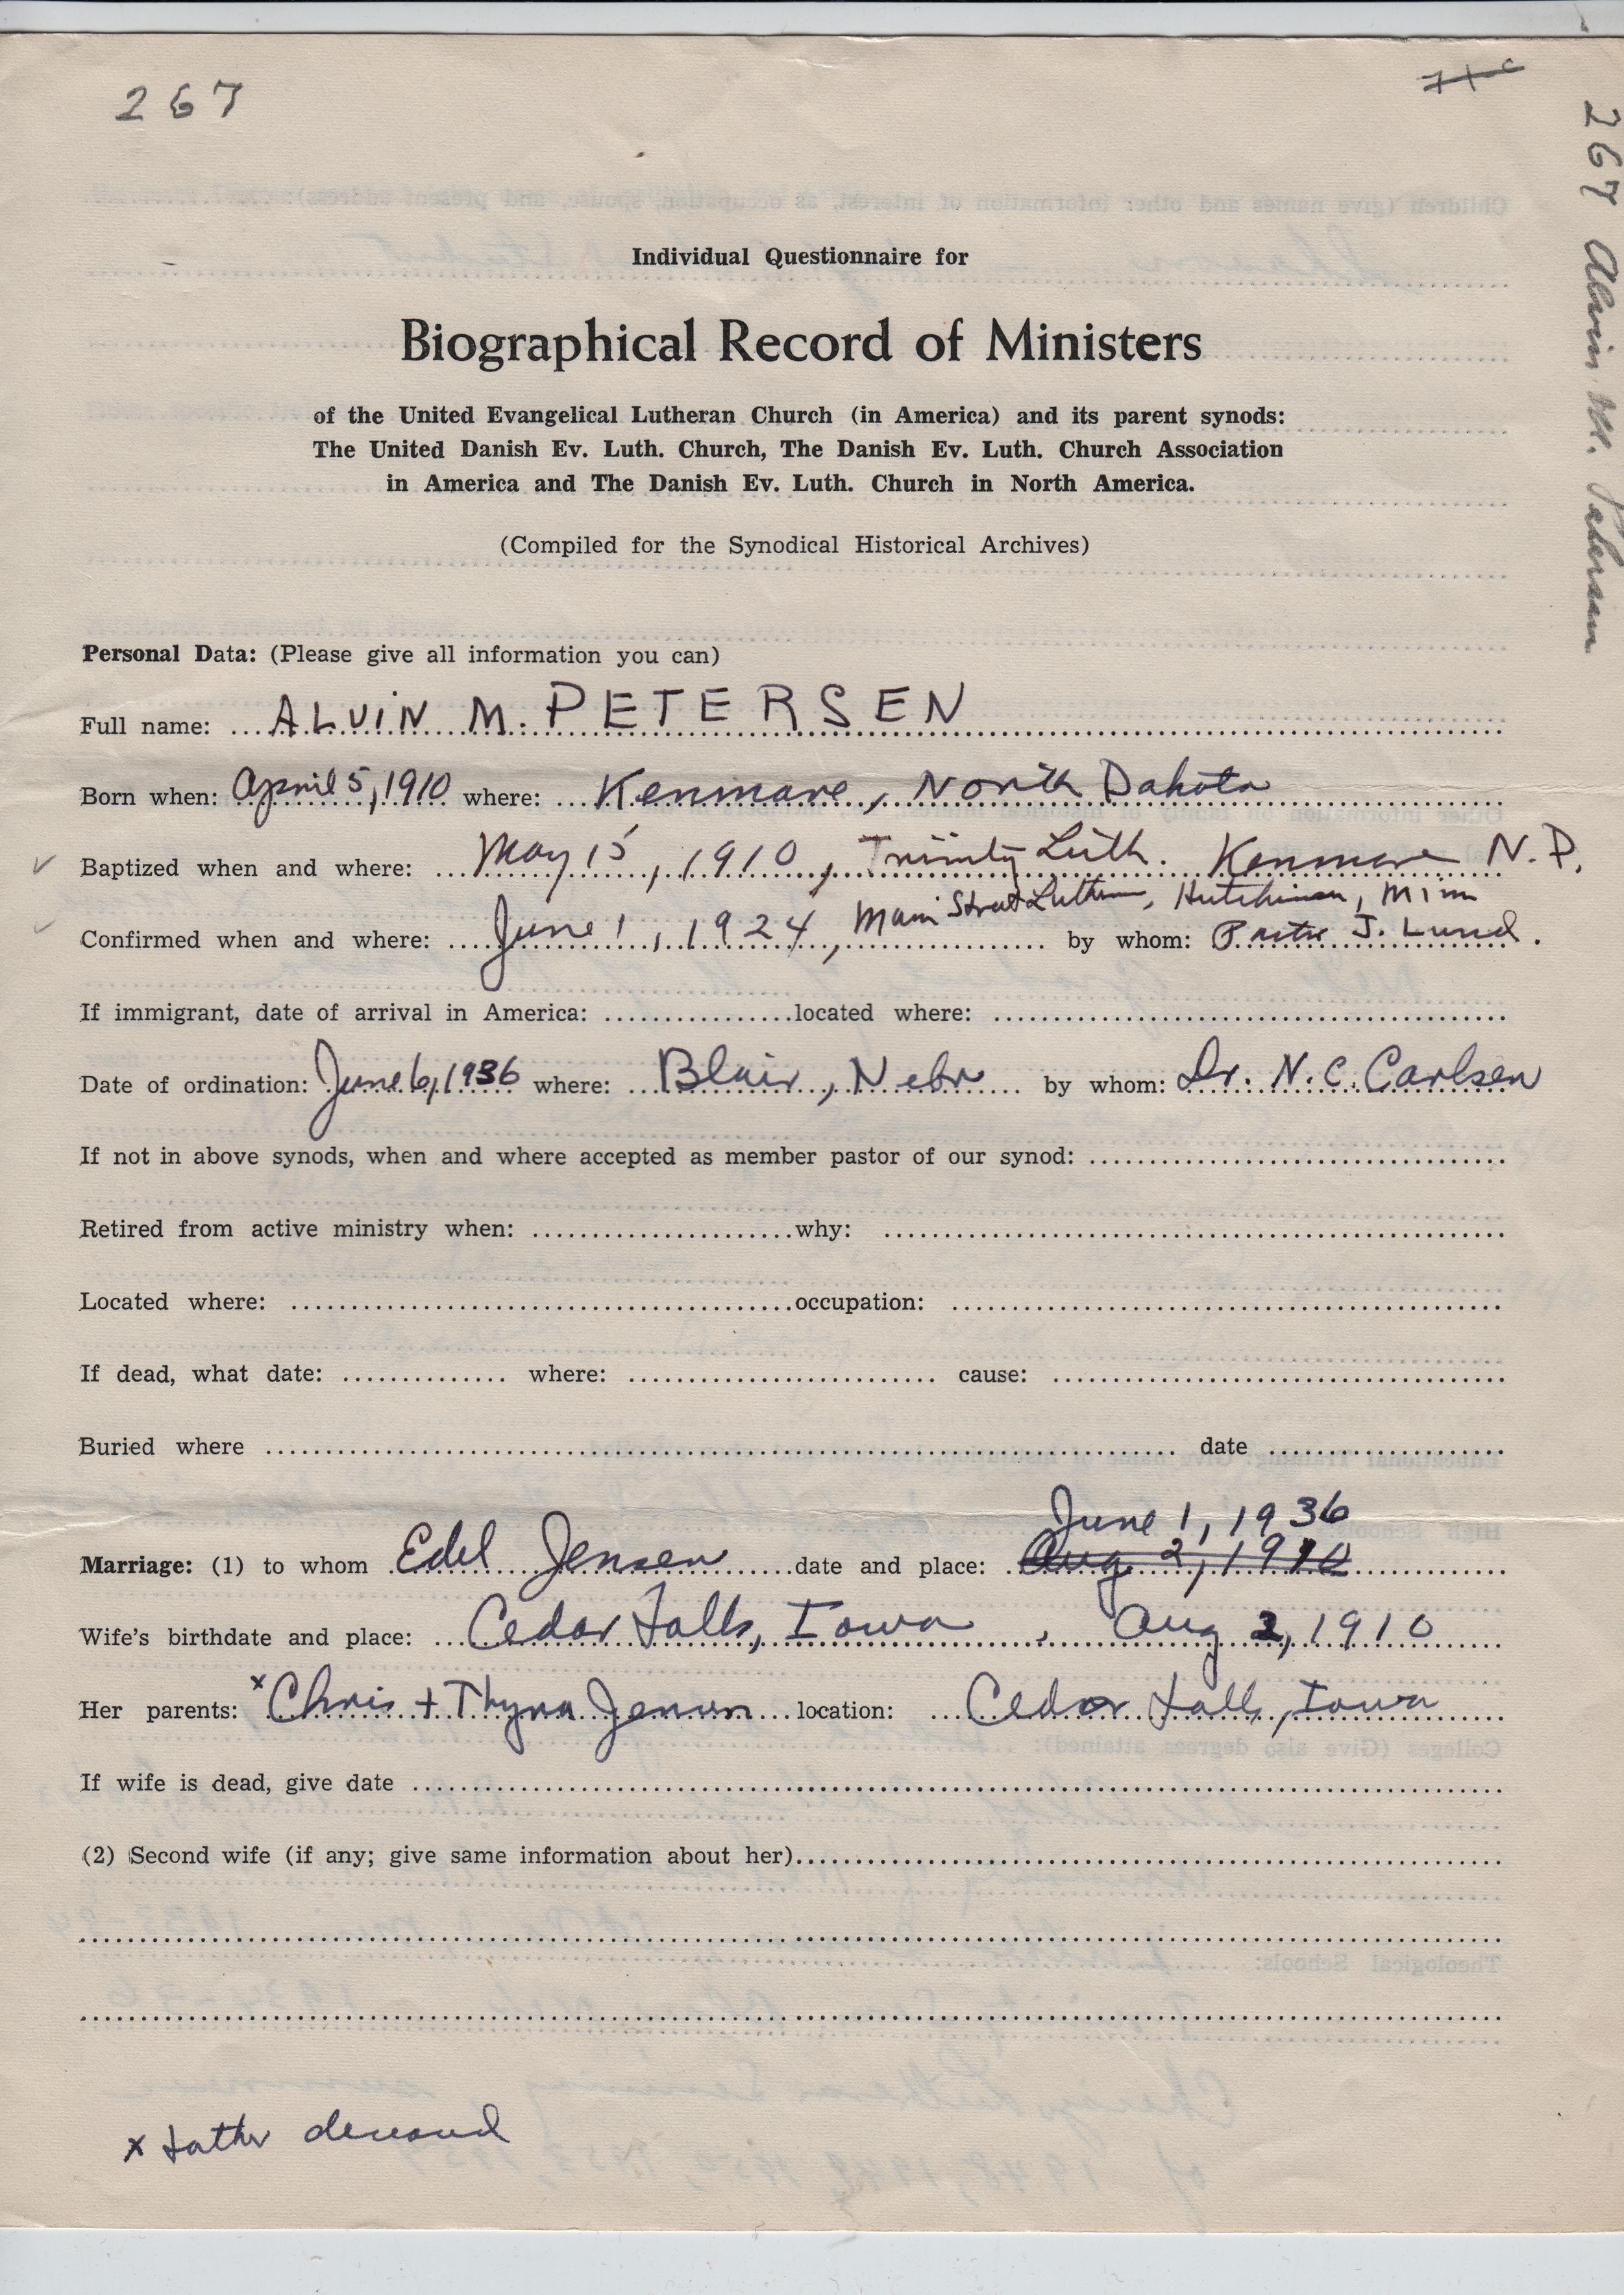 267
267 Alvin M. Petersen
Individual Questionnaire for
Biographical Record of Ministers
of the United Evangelical Lutheran Church (in America) and its parent synods:
The United Danish Ev. Luth. Church, The Danish Ev. Luth. Church Association
in America and The Danish Ev. Luth. Church in North America.
(Compiled for the Synodical Historical Archives)
Personal Data: (Please give all information you can)
Full name: ALVIN M. PETERSEN
Born when: April 5, 1910 where: Kenmare, North Dakota
Baptized when and where: May 15, 1910, Trinity Luth. Kenmare N.D.
Confirmed when and where: June 1, 1924, Main Street Luthern, Hutchinson, Minn by whom: Pastor J. Lund.
If immigrant, date of arrival in America: located where:
Date of ordination: June 6, 1936 where: Blair, Nebr by whom: Dr. N.C. Carlsen
If not in above synods, when and where accepted as member pastor of our synod:
Retired from active ministry when: why:
Located where: occupation:
If dead, what date: where: cause:
Buried where date
June 1, 1936
Marriage: (1) to whom Edel Jensen date and place: Aug. 2, 1910
Wife's birthdate and place: Cedar Falls, Iowa, Aug 2, 1910
Her parents: x Chris + Thyra Jensen location: Cedar Falls, Iowa
If wife is dead, give date
(2) Second wife (if any; give same information about her)
x Father deceased